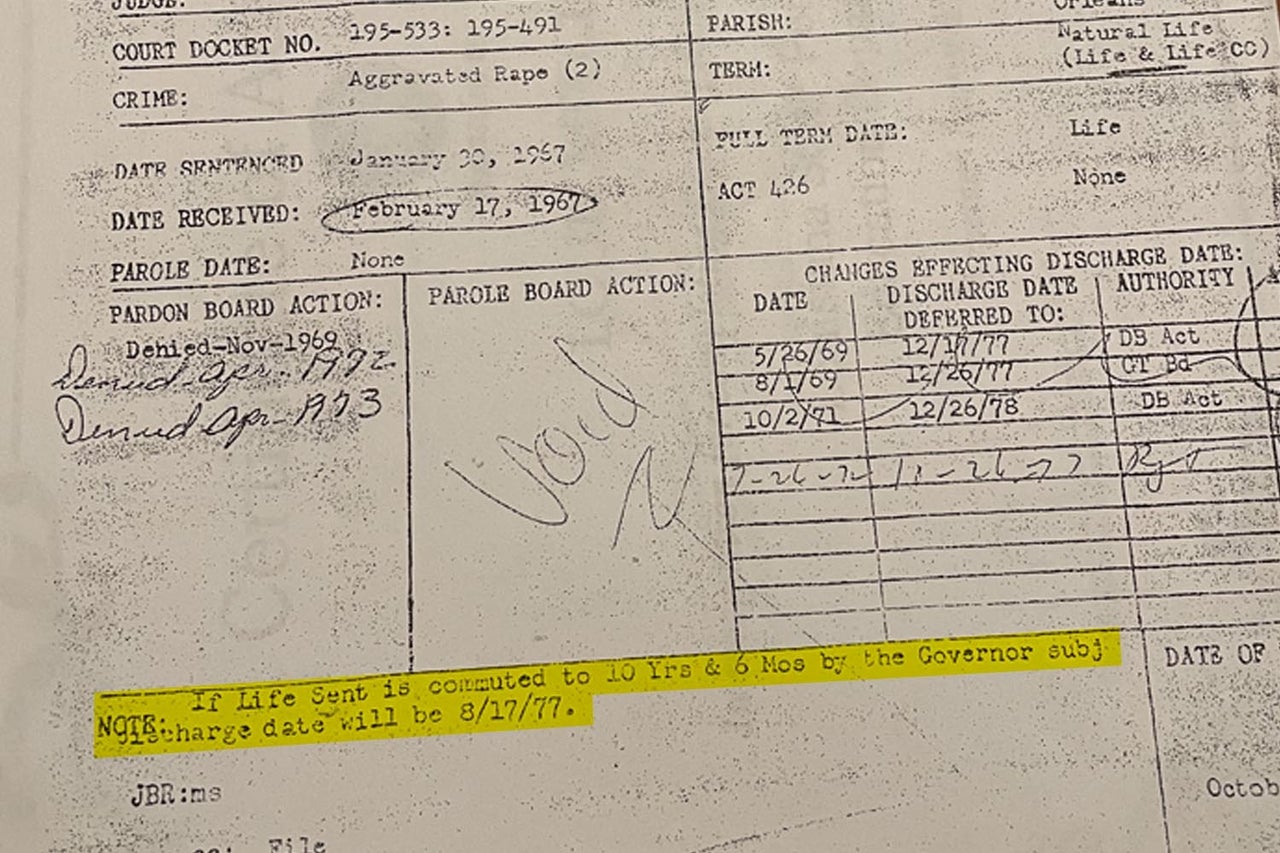 JUDGE:
COURT DOCKET NO. 195-533: 195-491
CRIME: Aggravated Rape (2)
PARISH: Orleans
TERM: Natural Life
(Life & Life CC)
DATE SENTENCED January 30, 1967
DATE RECEIVED: February 17, 1967
PAROLE DATE: None
FULL TERM DATE: Life
ACT 426 None
PARDON BOARD ACTION:
Denied-Nov-1969
Denied-Apr-1972
Denied Apr-1973
PAROLE BOARD ACTION:
Void
CHANGES EFFECTING DISCHARGE DATE:
DATE DISCHARGE DATE DEFERRED TO: AUTHORITY
5/26/69 12/17/77 DB Act
8/1/69 12/26/77 GT Bd
10/2/71 12/26/78 DB Act
7-26-72 11-26-77
NOTE: If Life Sent is commuted to 10 Yrs & 6 Mos by the Governor subj
discharge date will be 8/17/77.
DATE OF
Octob
JBR:ms
cc: File